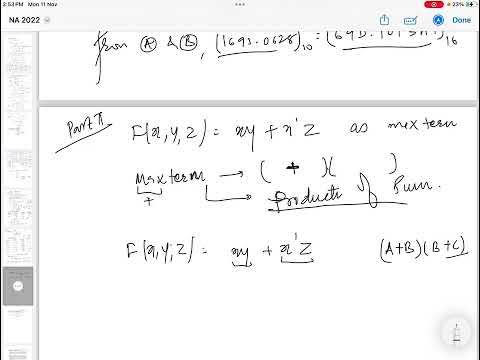 2:53 PM Mon 11 Nov
23%
NA 2022
Done
from Ⓐ & Ⓑ, (1693.0628)₁₀ = (
)₁₆
Part II
F(x,y,z) = xy + x'z as maxterm
Maxterm → ( + )( )
+ → Products of Sum.
F(x,y,z) = xy + x'z (A+B)(B+C)